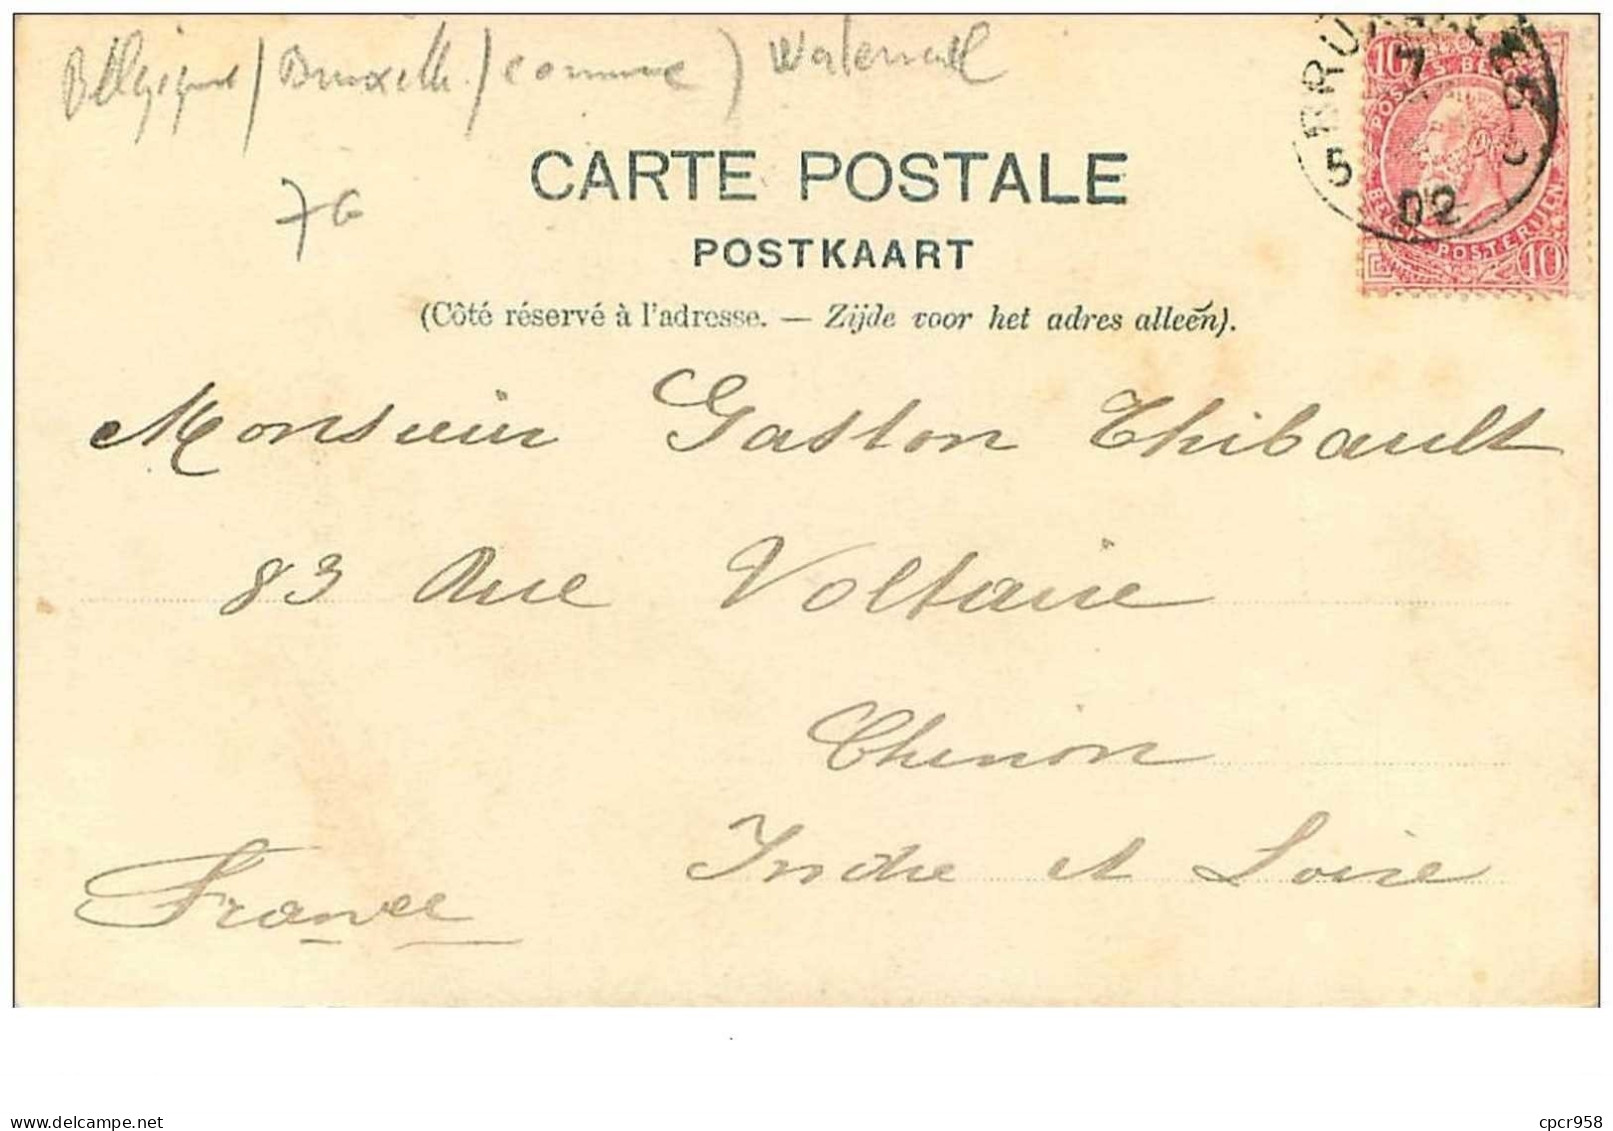 Belgique / Bruxelle / (commune) Watermael
CARTE POSTALE
76
POSTKAART
(Côté réservé à l'adresse. — Zijde voor het adres alleen).
10 10
POSTES BELGES
BELG POSTERIJEN
BRUXELLES
7
5
02
Monsieur Gaston Thibault
83 Rue Voltaire
Chinon
Indre et Loire
France
delcampe.net
cpcr958